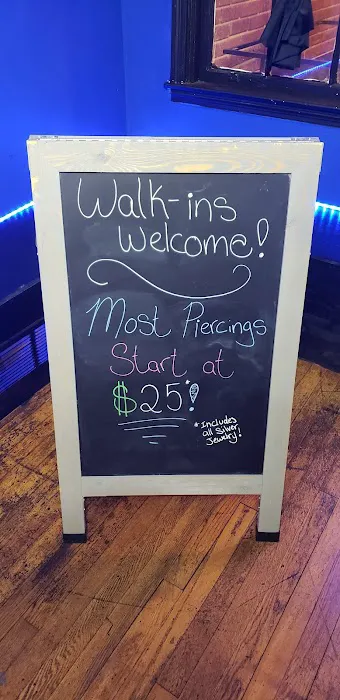 Walk-ins
Welcome!
Most Piercings
Start at
$25*!
*Includes
all Silver
Jewelry!